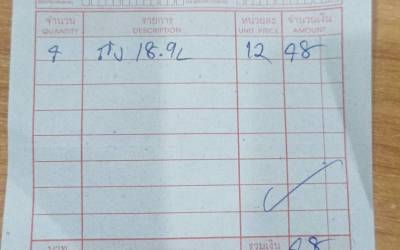 จำนวน รายการ หน่วยละ จำนวนเงิน
QUANTITY DESCRIPTION UNIT PRICE AMOUNT
4 ถัง 18.9L 12 48
บาท รวมเงิน 48